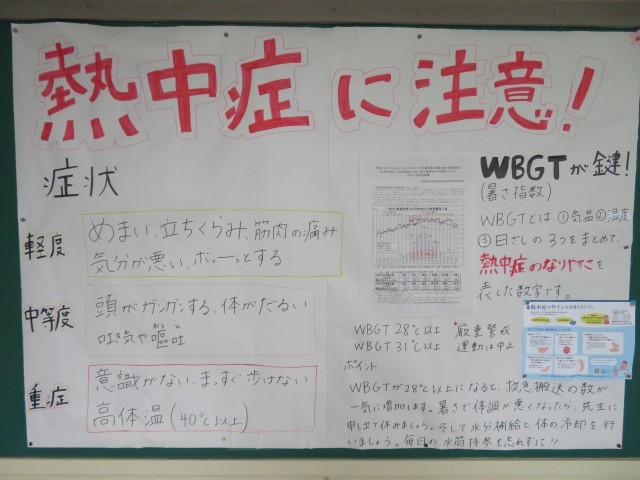 熱中症に注意！
症状
軽度
めまい、立ちくらみ、筋肉の痛み
気分が悪い、ボーっとする
中等度
頭がガンガンする、体がだるい
吐き気や嘔吐
重症
意識がない、まっすぐ歩けない
高体温(40℃以上)
WBGTが鍵！
(暑さ指数)
WBGTとは、①気品②温度
③日ざしの3つをまとめて、
熱中症のなりやすさを
表した数字です。
WBGT 28℃以上 厳重警戒
WBGT 31℃以上 運動は中止
ポイント
WBGTが28℃以上になると、救急搬送の数が
一気に増加します。暑さで体調が悪くなったら、先生に
申し出て休みましょう。そして水分補給と体の冷却を行
いましょう。毎日の水筒持参も忘れずに!!